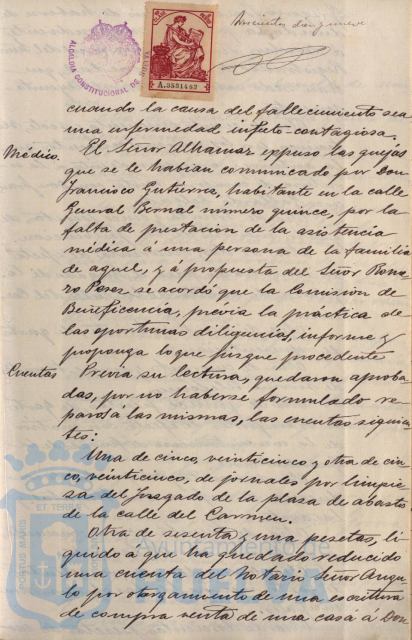 Doscientos diez y nueve
ALCALDIA CONSTITUCIONAL DE
A.3531463
cuando la causa del fallecimiento sea
una enfermedad infecto contagiosa.
Médico. El Señor Alhamar expuso las quejas
que se le habian comunicado por Don
Francisco Gutiérrez, habitante en la calle
General Bernal número quince, por la
falta de prestacion de la asistencia
médica á una persona de la familia
de aquel, y á propuesta del Señor Rome
ro Perez se acordó que la Comision de
Beneficencia, prévia la práctica de
las oportunas diligencias, informe y
proponga lo que juzgue procedente
Cuentas Prévia su lectura, quedaron aproba
das, por no haberse formulado re
paros á las mismas, las cuentas siguien
tes:
Una de cinco, veinticinco y otra de cin
co, veinticinco, de jornales por limpie
sa del juzgado de la plaza de abastos
de la calle del Carmen.
Otra de sesenta y una pesetas, lí
quido á que ha quedado reducido
una cuenta del Notario Señor Angu
lo por otorgamiento de una escritura
de compra venta de una casa á Don